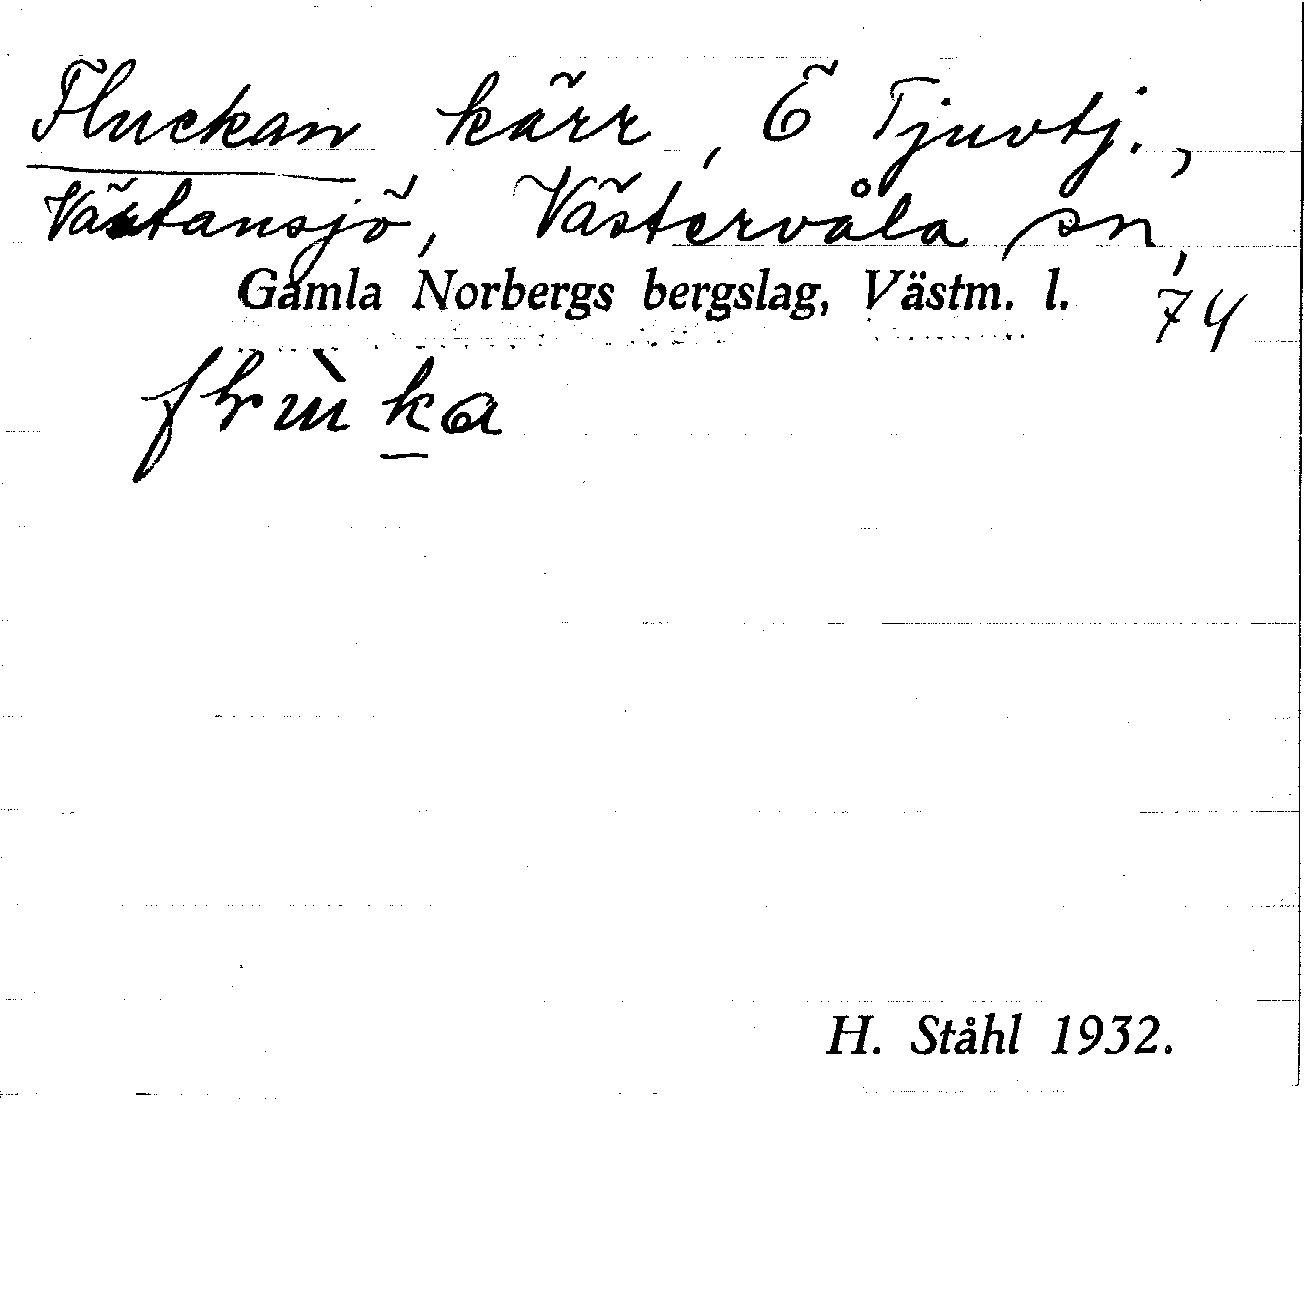 Fluckan kärr, Ö Tjuvtj.,
Västansjö, Västervåla sn,
Gamla Norbergs bergslag, Västm. l. 74
H. Ståhl 1932.